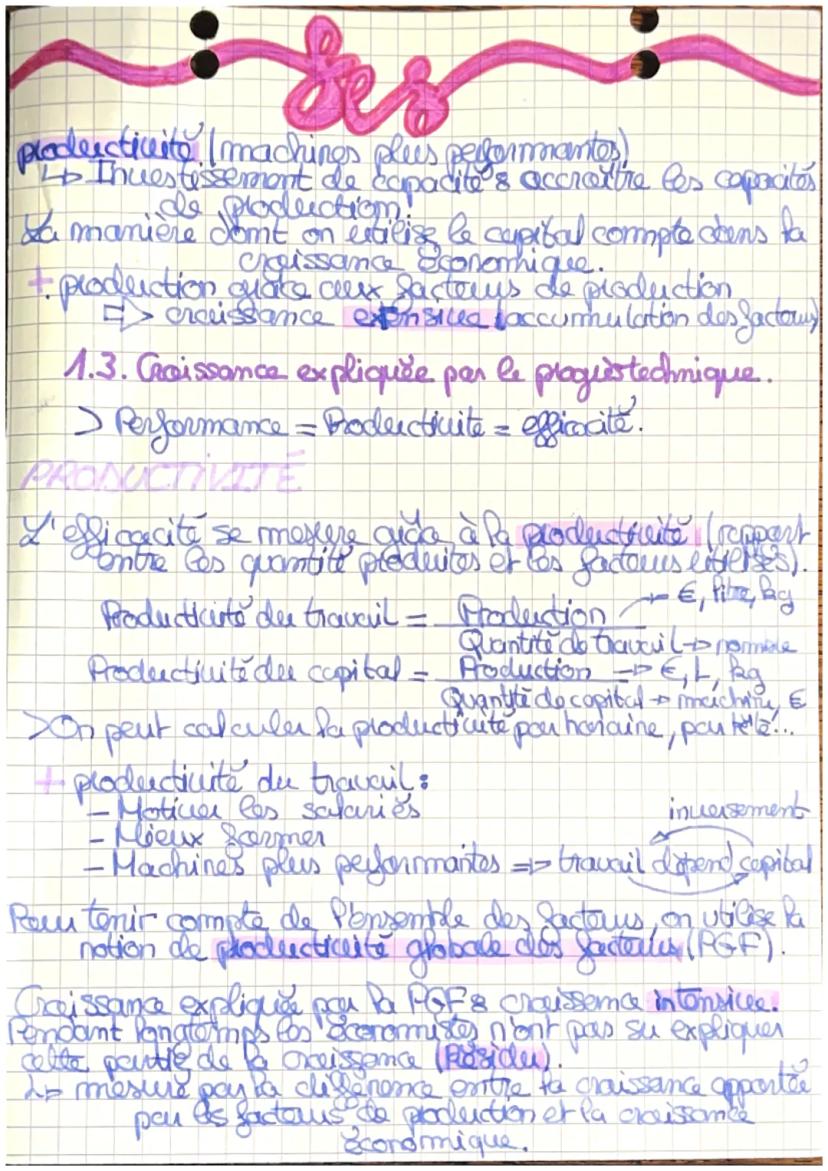 Ses
productivité (machines plus performantes)
↳ Investissement de capacité : accroître les capacités
de production.
La manière dont on utilise le capital compte dans la
croissance économique.
+ production grâce aux facteurs de production
⇨ croissance extensive (accumulation des facteurs)
1.3. Croissance expliquée par le progrès technique.
> Performance = Productivité = efficacité.
PRODUCTIVITÉ
L'efficacité se mesure grâce à la productivité (rapport
entre les quantité produites et les facteurs utilisés).
Productivité du travail = Production → €, litre, kg
Quantité de travail → nombre
Productivité du capital = Production → €, L, kg
Quantité de capital → machine, €
> On peut calculer la productivité par horaire, par tête...
+ productivité du travail :
- Motiver les salariés
inversement
- Mieux former
- Machines plus performantes => travail dépend capital
Pour tenir compte de l'ensemble des facteurs, on utilise la
notion de productivité globale des facteurs (PGF).
Croissance expliquée par la PGF : croissance intensive.
Pendant longtemps les économistes n'ont pas su expliquer
cette partie de la croissance (Résidu).
↳ mesuré par la différence entre la croissance apportée
par les facteurs de production et la croissance
économique.